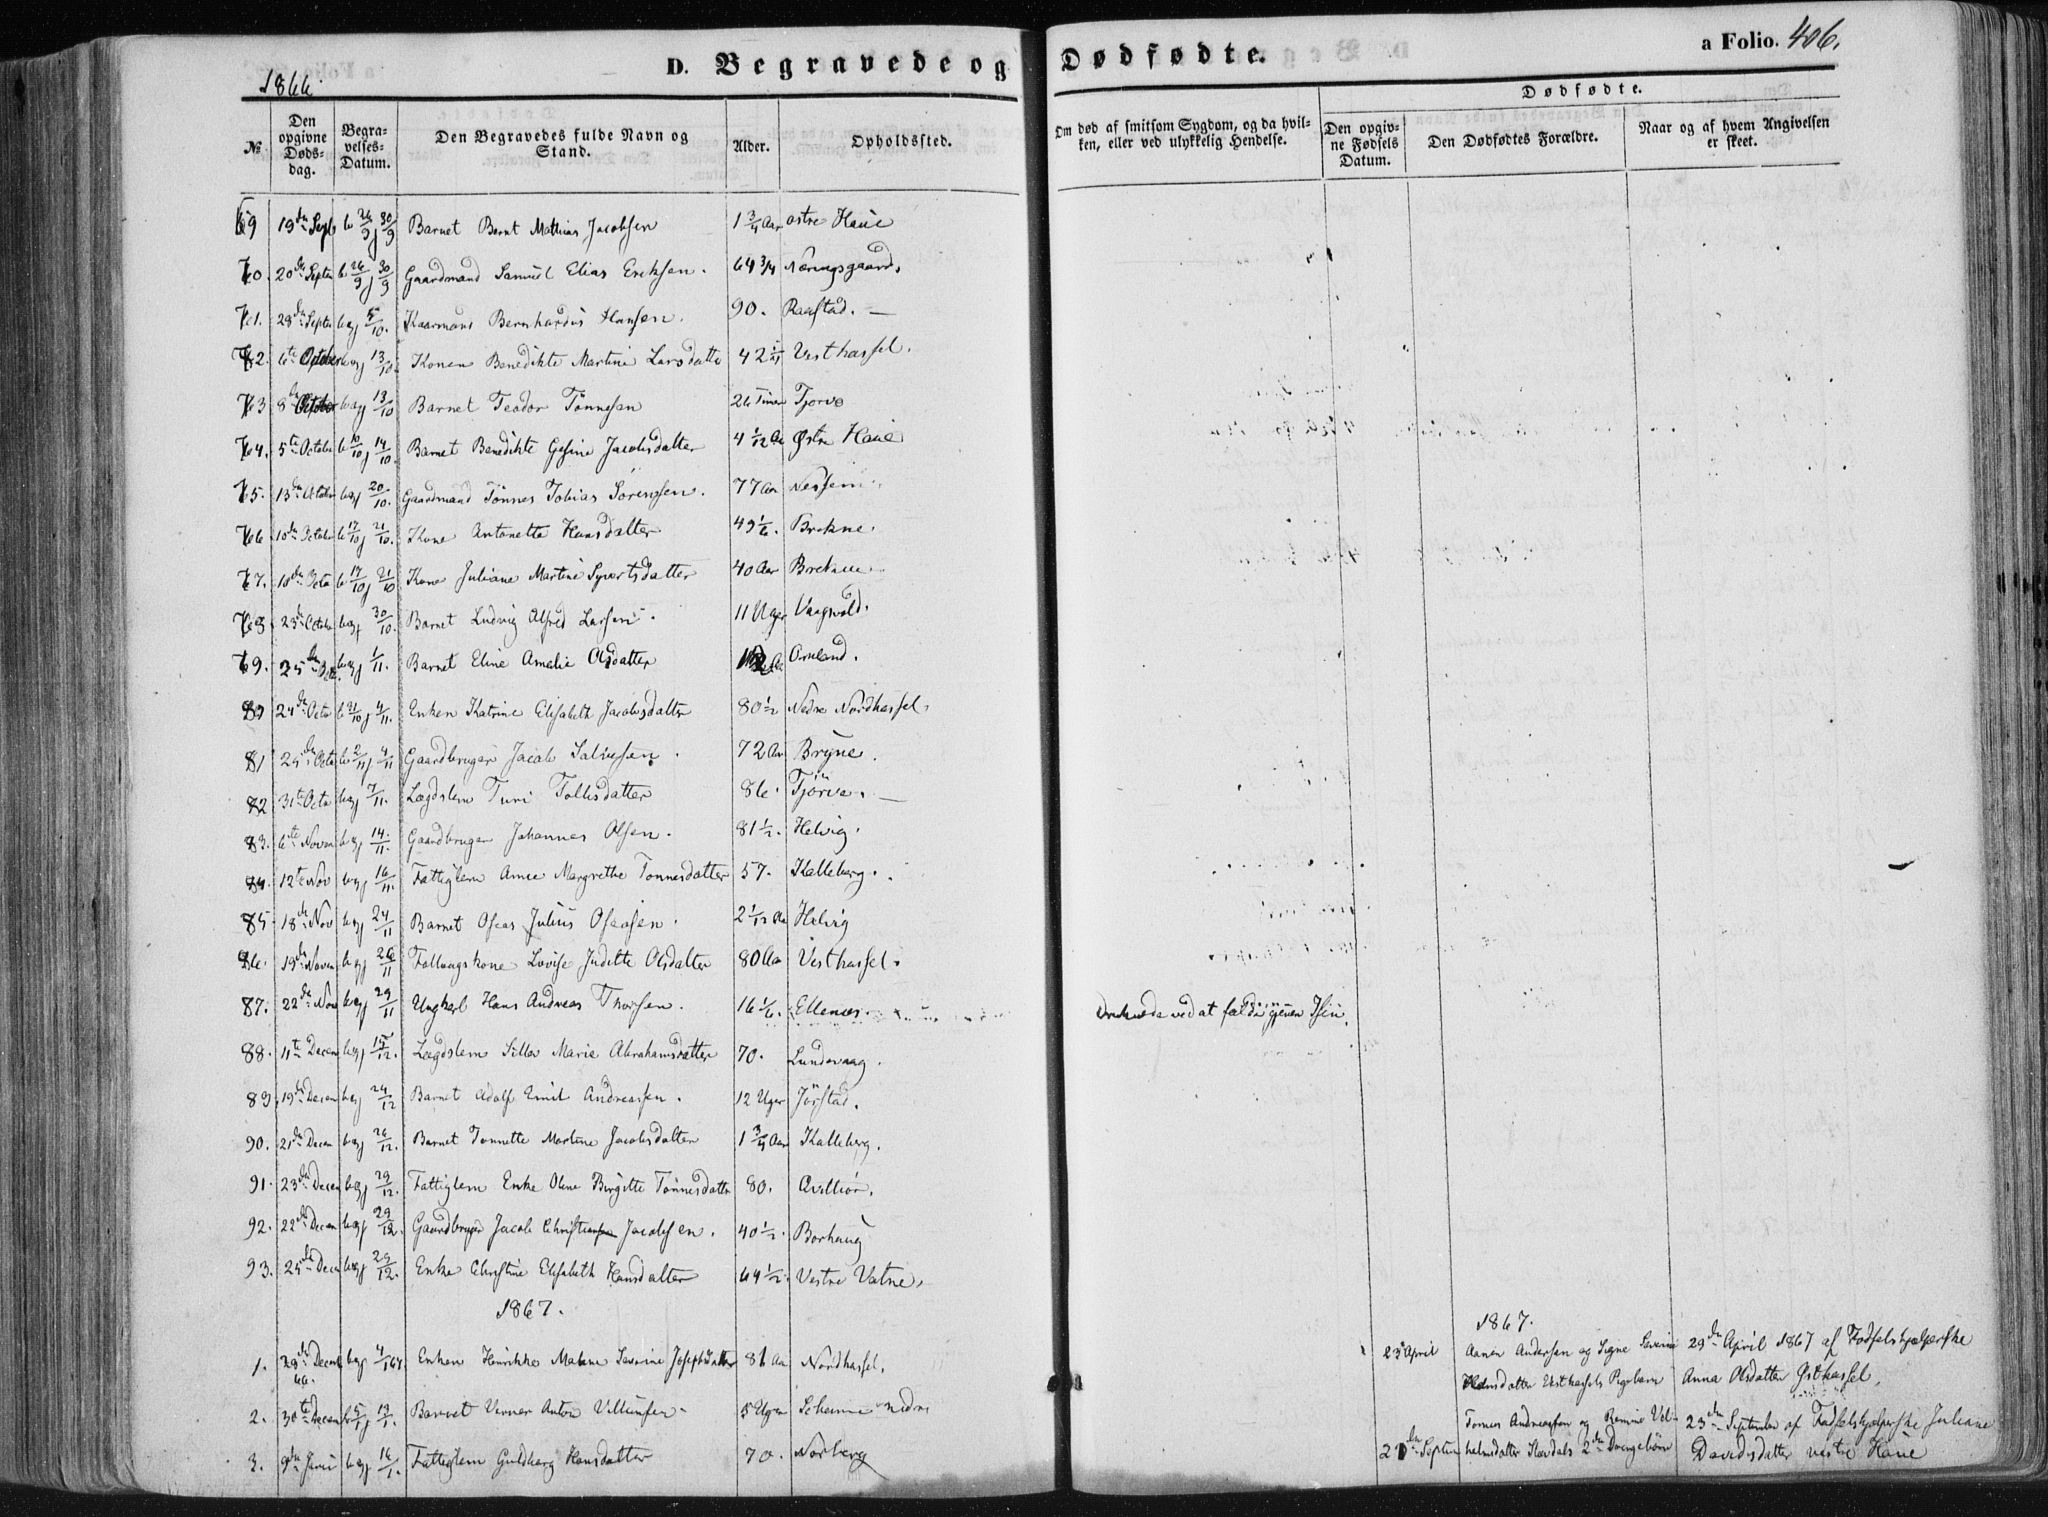 D. Begravede og Dødfødte.
a Folio. 406.
1866.
Dødfødte.
No. Den opgivne Døds-dag. Begra-velses-Datum. Den Begravedes fulde Navn og Stand. Alder. Opholdssted. Om død af smitsom Sygdom, og da hvil-ken, eller ved ulykkelig Hendelse. Den opgiv-ne Fødsels Datum. Den Dødfødtes Forældre. Naar og af hvem Angivelsen er skeet.
69 19de Sept b 26/9 j 30/9 Barnet Bernt Mathias Jacobsen 1 3/4 Aar østre Haue
70. 20de Septr b 26/9 j 30/9 Gaardmand Samuel Elias Eriksen. 64 3/4 Næringsgaard.
71. 28de Septr beg 5/10. Kaarmand Bernhardus Hansen. 90. Raastad.
72. 6te October beg 13/10 Konen Benedikte Martine Larsdatter 42 Vesthassel.
73 8de October beg 13/10 Barnet Teodor Tønnesen 26 Timer Tjorve
74. 5te October b 10/10 j 14/10 Barnet Benedikte Gesine Jacobsdatter 4 1/12 Østre Haue
75. 13de October beg 20/10. Gaardmand Tønnes Tobias Sørensen. 77 Aar
76 10de October b 17/10 j 21/10. Kone Antonette Hansdatter 49 1/6. Brekne.
77. 10de Octo b 17/10 j 21/10 Kone Juliane Martine Syvertsdatter 40 Aar Brekne
78 23de Octobr beg 30/10. Barnet Ludvig Alfred Larsen. 11 Uger Vaagvold.
79. 25de Octo. beg 1/11. Barnet Eline Amalie Olsdatter Omland.
80 24de Octo b 31/10 j 4/11. Enken Katrine Elisabeth Jacobsdatter 80 1/2 Nedre Nordhassel.
81 25de Octo b 2/11 j 4/11 Gaardbruger Jacob Salvesen. 72 Aar Bryne.
82 31te Octo beg 7/11. Lægdslem Turi Tollisdatter 86. Tjörve.
83. 6te Novem beg 14/11. Gaardbruger Johannes Olsen. 81 1/2. Helvig.
84. 12te Nov beg 16/11. Fattiglem Anne Margrethe Tonnesdatter 57. Kalleberg.
85. 18de Nov beg 24/11 Barnet Oscar Julius Osensen. 2 1/12 Aar Helvig
86. 19de Novem beg 26/11 Lovise Judette Olsdatter 80 Aar Vesthassel.
87. 22de Nov beg 29/11 Ungkarl Hans Andreas Thorsen. 16 1/6. Ellenes. Druknede ved at falde gjenem Isen.
88. 11te Decem beg 15/12. Lægdslem Sille Marie Abrahamsdatter 70. Lundevaag.
89. 19de Decem beg 24/12 Barnet Adolf Emil Andreassen. 12 Uger Jörstad.
90. 21de Decem beg 26/12. Barnet Tonnette Martine Jacobsdatter 1 3/4 Aar Kalleberg.
91. 23de Decem beg 29/12. Fattiglem Enke Olene Birgitte Tönnesdatter 80.
92. 22de Decem beg 29/12. Gaardbruger Jacob Christian Jacobsen. 40 1/2. Borhaug
93. 25de Decem beg 29/12. Enke Christine Elisabeth Hansdatter 64 1/2. Vestre Vatne.
1867.
1867.
1. 29de Decemb 66. beg 4/1 67 Enken Henrikke Malene Severine Josephsdatter 81 Aar Nordhassel. 23 April Aanen Andersen og Signe Severine 29de April 1867 af Fødselshjælperske
Hansdatter Vesthassels Pigebarn Anna Olsdatter Østhassel.
2. 30te Decem b 5/1 j 13/1. Barnet Verner Anton Villumsen. 5 Uger nedre Tonnes Andreassen og Remine Vil- 23de September af Fødselshjælperske Juliane
3. 9de Janu beg 16/1. Fattiglem Guldborg Hansdatter 70. Norberg 21de Septem helmsdatter 2de Drengebørn Davidsdatter vestre Haue